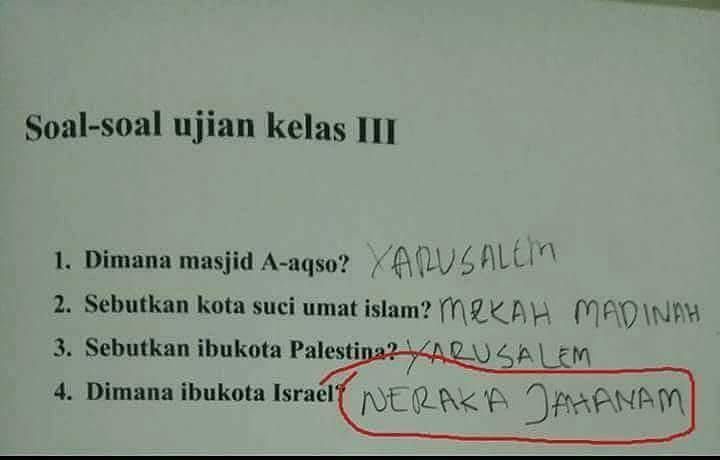 Soal-soal ujian kelas III
1. Dimana masjid A-aqso? YARUSALEM
2. Sebutkan kota suci umat islam? MEKAH MADINAH
3. Sebutkan ibukota Palestina? YARUSALEM
4. Dimana ibukota Israel? NERAKA JAHANAM